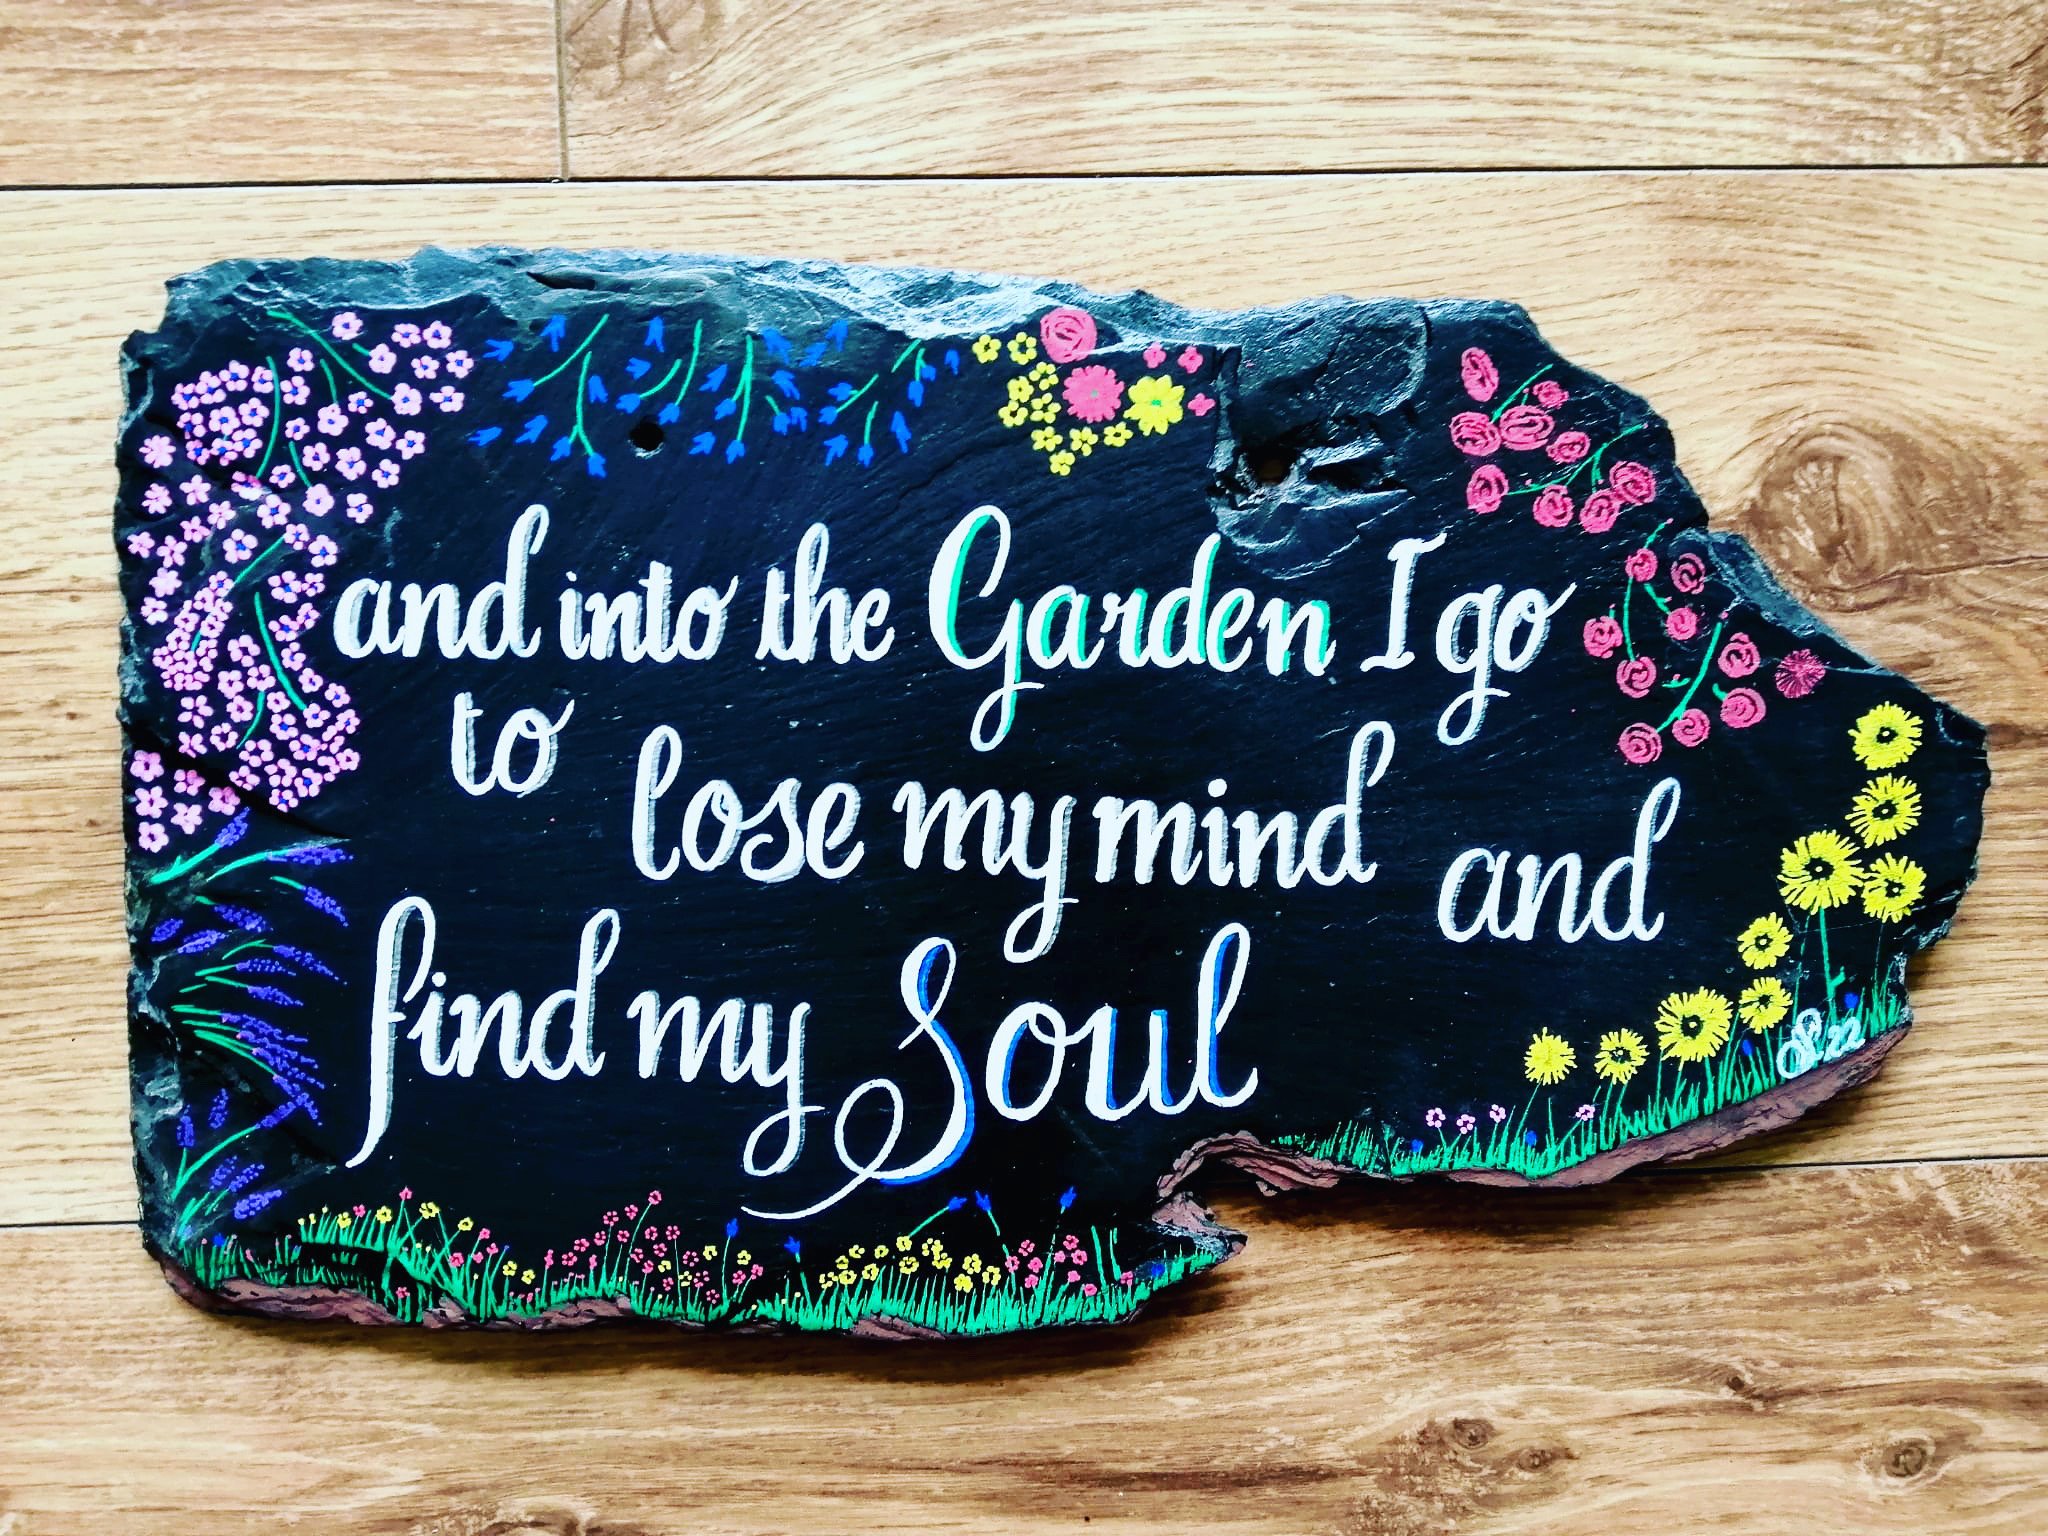 and into the Garden I go
to lose my mind and
find my Soul
22